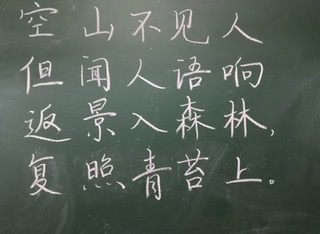 空山不见人
但闻人语响
返景入森林，
复照青苔上。